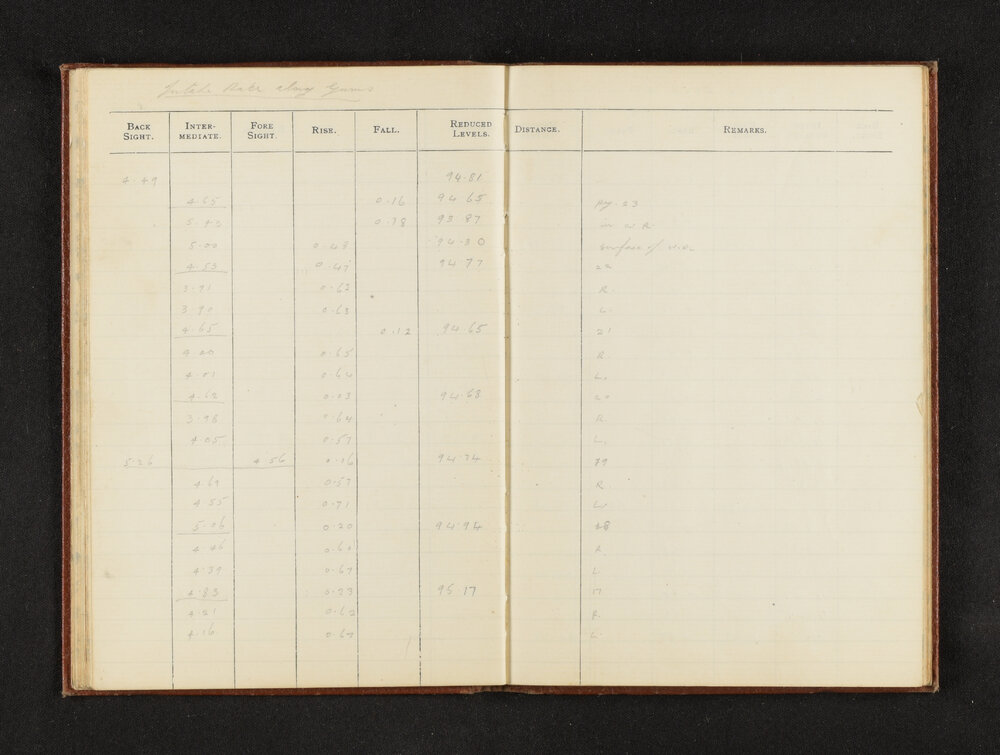 along
BACK SIGHT. INTER-MEDIATE. FORE SIGHT. RISE. FALL. REDUCED LEVELS. DISTANCE. REMARKS.
4.49 94.81
4.65 0.16 94.65 23
5.43 0.78 93.87 in W.R.
5.00 0.43 94.30 surface of
4.53 0.47 94.77 22
3.91 0.62 R.
3.90 0.63 L.
4.65 0.12 94.65 21
4.00 0.65 R.
4.01 0.64 L.
4.62 0.03 94.68 20
3.98 0.64 R.
4.05 0.57 L.
5.26 4.56 0.16 94.74 19
4.69 0.57 R.
4.55 0.71 L.
5.06 0.20 94.94 18
4.46 0.60 R.
4.39 0.67 L.
4.83 0.23 95.17 17
4.21 0.62 R.
4.16 0.67 L.